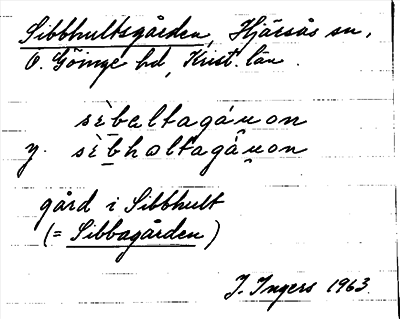 Sibbhultsgården, Hjärsås sn,
Ö. Göinge hd, Krist. län.
sèbaltagáuon
y. sèbholtagáuon
gård i Sibbhult
(= Sibbagården)
I. Ingers 1963.